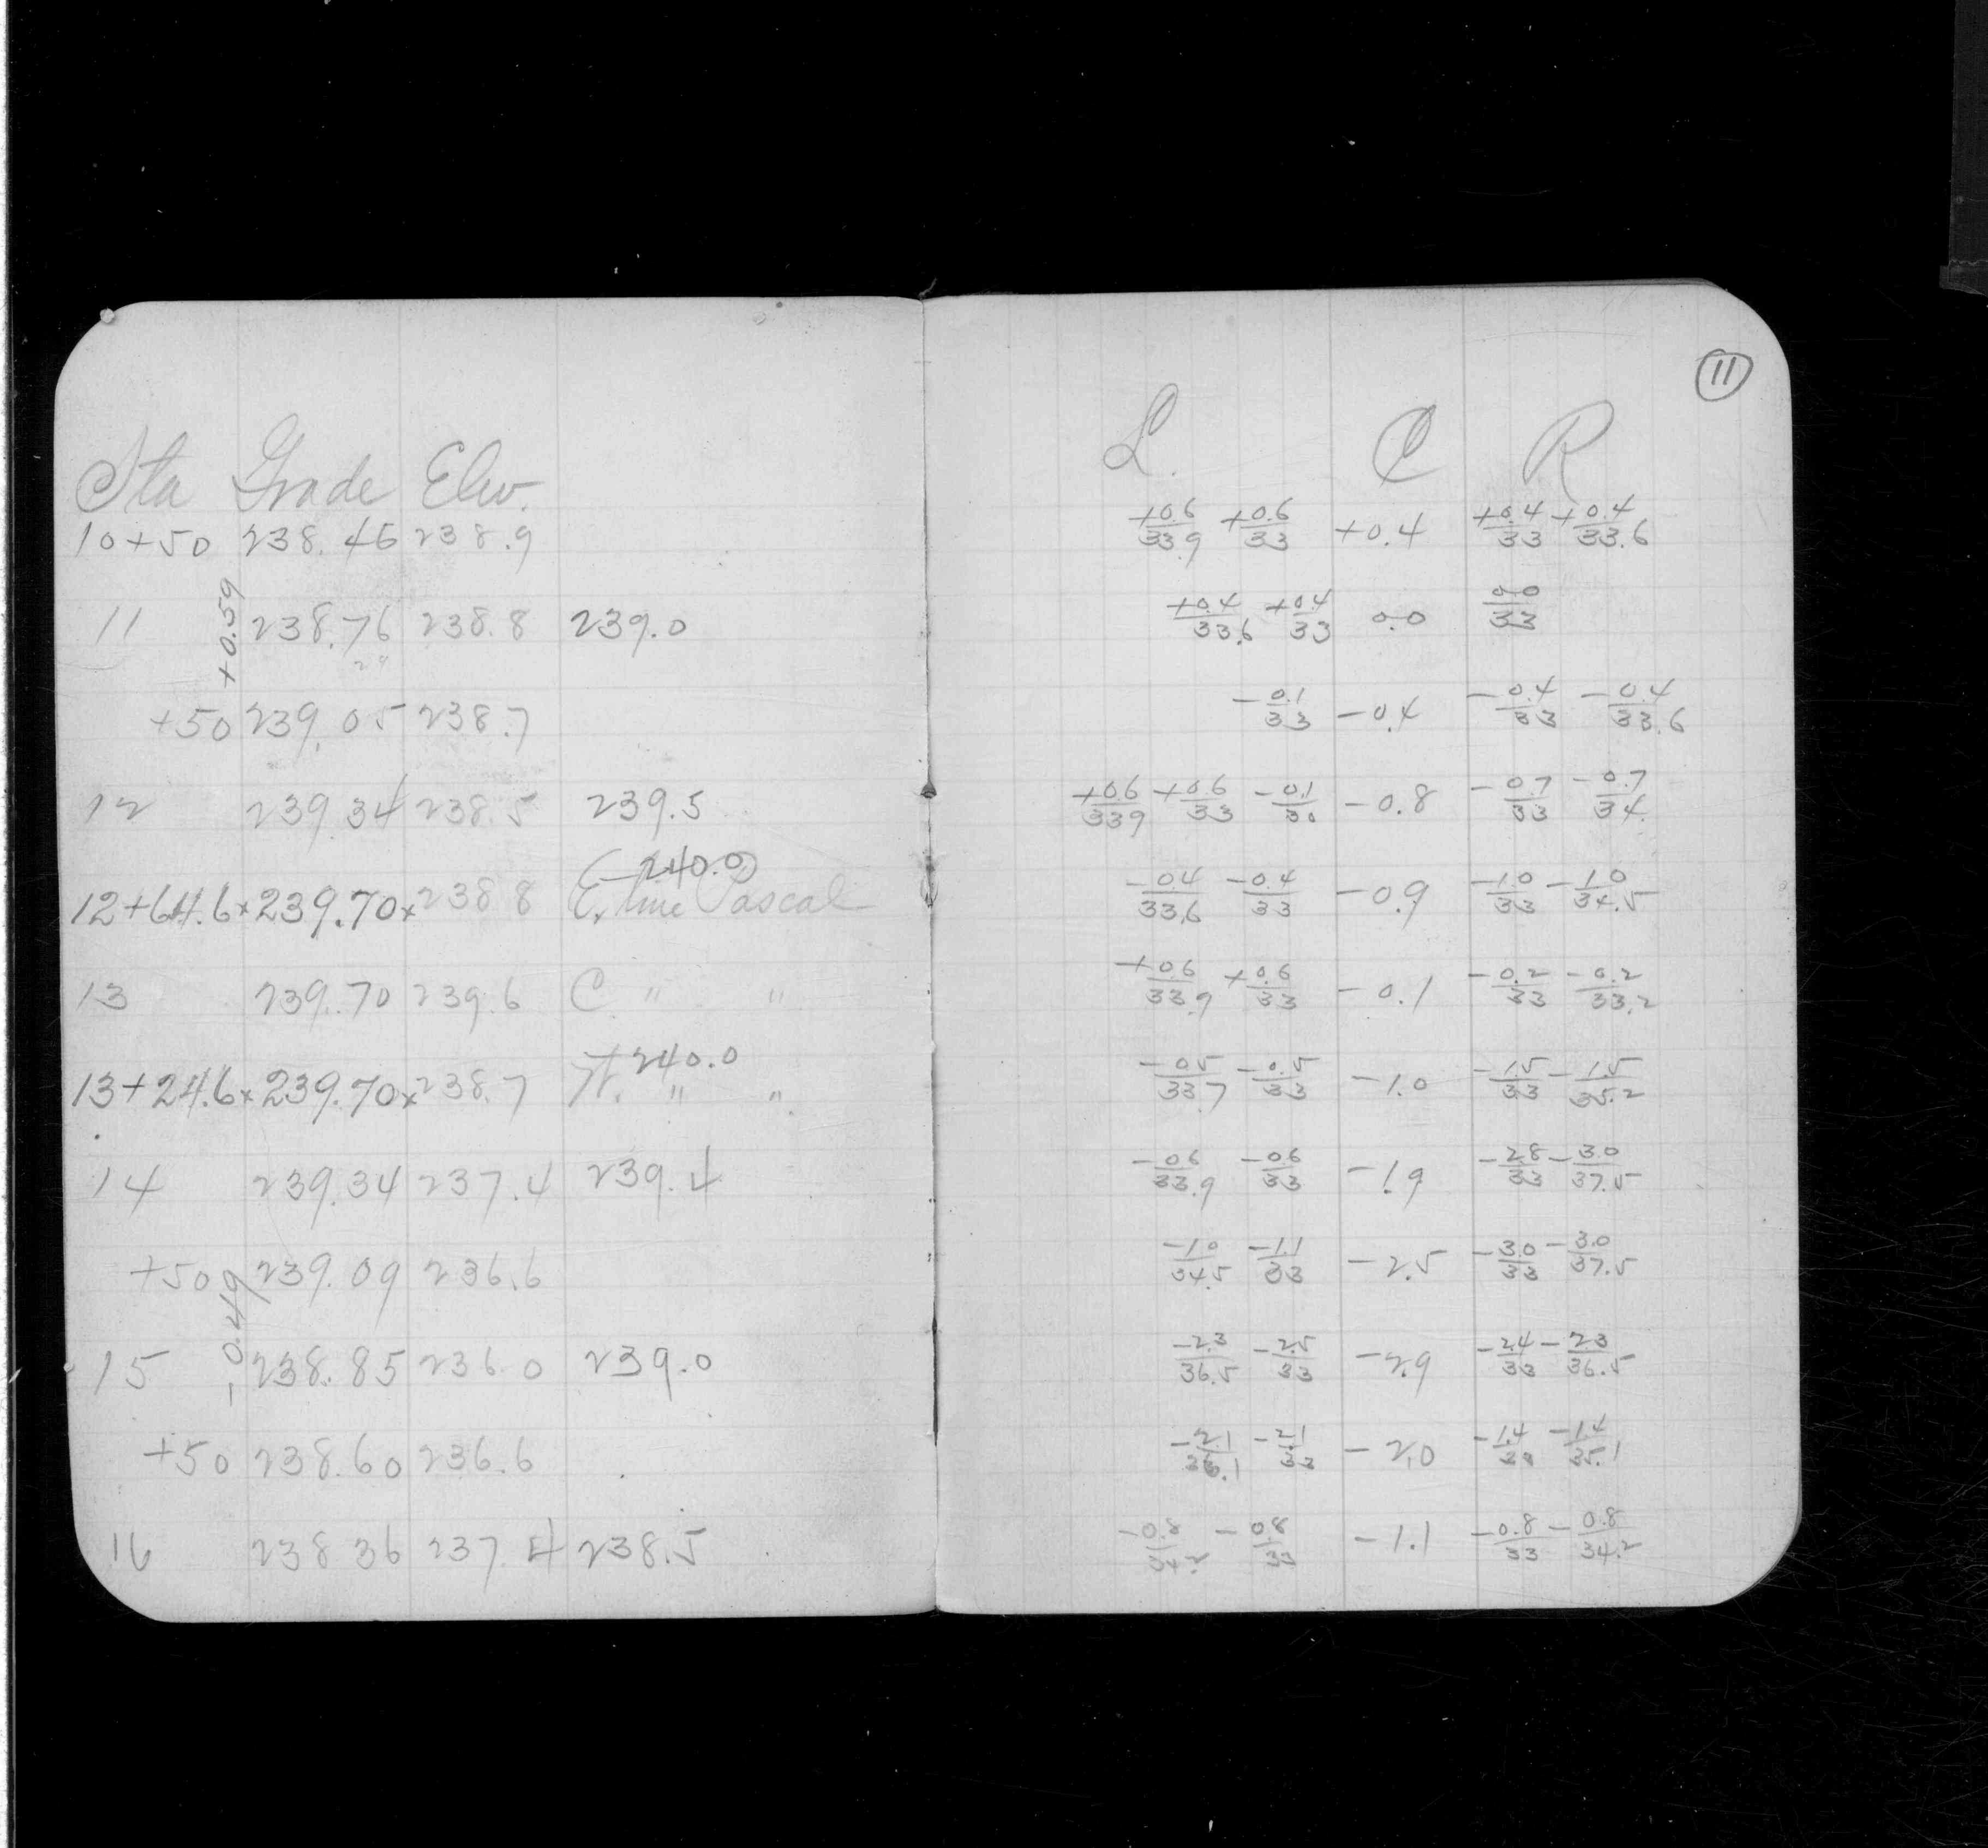 11
Sta Grade Elev.
10+50 238.46 238.9
+0.59
11 238.76 238.8 239.0
29
+50 239.05 238.7
12 239.34 238.5 239.5
240.0
12+64.6 x 239.70 x 238.8 E. line Pascal
13 239.70 239.6 C. " "
240.0
13+24.6 x 239.70 x 238.7 W. " "
14 239.34 237.4 239.4
+50 239.09 236.6
-0.49
15 238.85 236.0 239.0
+50 238.60 236.6
16 238.36 237.4 238.5
L. ℄ R
+0.6/33.9 +0.6/33 +0.4 +0.4/33 +0.4/33.6
+0.4/33.6 +0.4/33 0.0 0.0/33
-0.1/33 -0.4 -0.4/33 -0.4/33.6
+0.6/33.9 +0.6/33 -0.1/30 -0.8 -0.7/33 -0.7/34
-0.4/33.6 -0.4/33 -0.9 -1.0/33 -1.0/34.5
+0.6/33.9 +0.6/33 -0.1 -0.2/33 -0.2/33.2
-0.5/33.7 -0.5/33 -1.0 -1.5/33 -1.5/35.2
-0.6/33.9 -0.6/33 -1.9 -2.8/33 -3.0/37.5
-1.0/34.5 -1.1/33 -2.5 -3.0/33 -3.0/37.5
-2.3/36.5 -2.5/33 -2.9 -2.4/33 -2.3/36.5
-2.1/36.1 -2.1/33 -2.0 -1.4/33 -1.4/35.1
-0.8/34.2 -0.8/33 -1.1 -0.8/33 -0.8/34.2